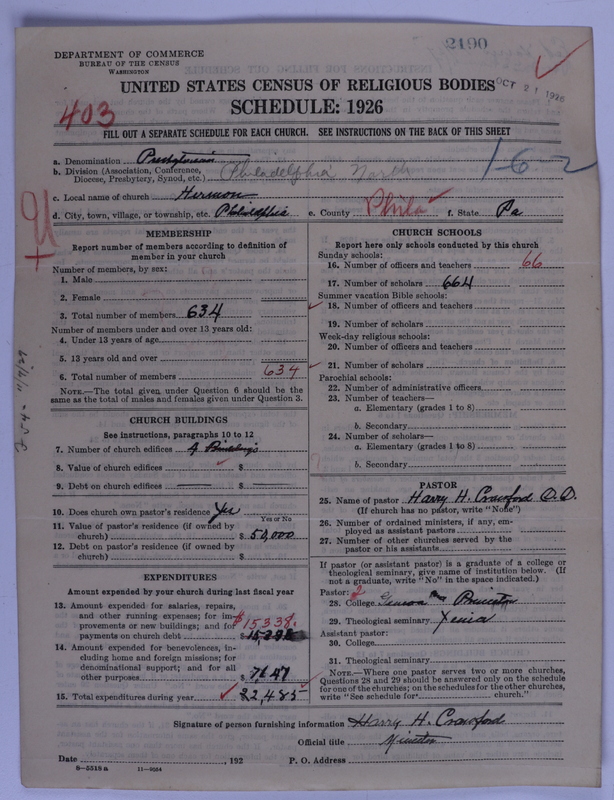 2190
DEPARTMENT OF COMMERCE
BUREAU OF THE CENSUS
WASHINGTON
OCT 21 1926
UNITED STATES CENSUS OF RELIGIOUS BODIES
SCHEDULE: 1926
403
FILL OUT A SEPARATE SCHEDULE FOR EACH CHURCH. SEE INSTRUCTIONS ON THE BACK OF THIS SHEET
a. Denomination Presbyterian
b. Division (Association, Conference, Diocese, Presbytery, Synod, etc.) Philadelphia North
1-6-2
c. Local name of church Hermon
d. City, town, village, or township, etc. Philadelphia e. County Phila f. State Pa
MEMBERSHIP
Report number of members according to definition of
member in your church
Number of members, by sex:
1. Male
2. Female
3. Total number of members 634
Number of members under and over 13 years old:
4. Under 13 years of age
5. 13 years old and over
6. Total number of members 634
NOTE.—The total given under Question 6 should be the
same as the total of males and females given under Question 3.
CHURCH BUILDINGS
See instructions, paragraphs 10 to 12
7. Number of church edifices 4 Buildings
8. Value of church edifices $
9. Debt on church edifices $
10. Does church own pastor's residence Yes
Yes or No
11. Value of pastor's residence (if owned by
church) $ 50,000
12. Debt on pastor's residence (if owned by
church) $
EXPENDITURES
Amount expended by your church during last fiscal year
13. Amount expended for salaries, repairs,
and other running expenses; for im-
provements or new buildings; and for $15338.
payments on church debt $
14. Amount expended for benevolences, in-
cluding home and foreign missions; for
denominational support; and for all
other purposes $ 7147
15. Total expenditures during year $ 22,485
CHURCH SCHOOLS
Report here only schools conducted by this church
Sunday schools:
16. Number of officers and teachers 66
17. Number of scholars 664
Summer vacation Bible schools:
18. Number of officers and teachers
19. Number of scholars
Week-day religious schools:
20. Number of officers and teachers
21. Number of scholars
Parochial schools:
22. Number of administrative officers
23. Number of teachers—
a. Elementary (grades 1 to 8)
b. Secondary
24. Number of scholars—
a. Elementary (grades 1 to 8)
b. Secondary
PASTOR
25. Name of pastor Harry H. Crawford D.D.
(If church has no pastor, write "None")
26. Number of ordained ministers, if any, em-
ployed as assistant pastors
27. Number of other churches served by the
pastor or his assistants
If pastor (or assistant pastor) is a graduate of a college or
theological seminary, give name of institution below. (If
not a graduate, write "No" in the space indicated.)
Pastor: 2
28. College Geneva Princeton
29. Theological seminary Xenia
Assistant pastor:
30. College
31. Theological seminary
NOTE.—Where one pastor serves two or more churches,
Questions 28 and 29 should be answered only on the schedule
for one of the churches; on the schedules for the other churches,
write "See schedule for church."
Signature of person furnishing information Harry H. Crawford
Official title Minister
Date , 192 P. O. Address
8-5518 a 11-9054